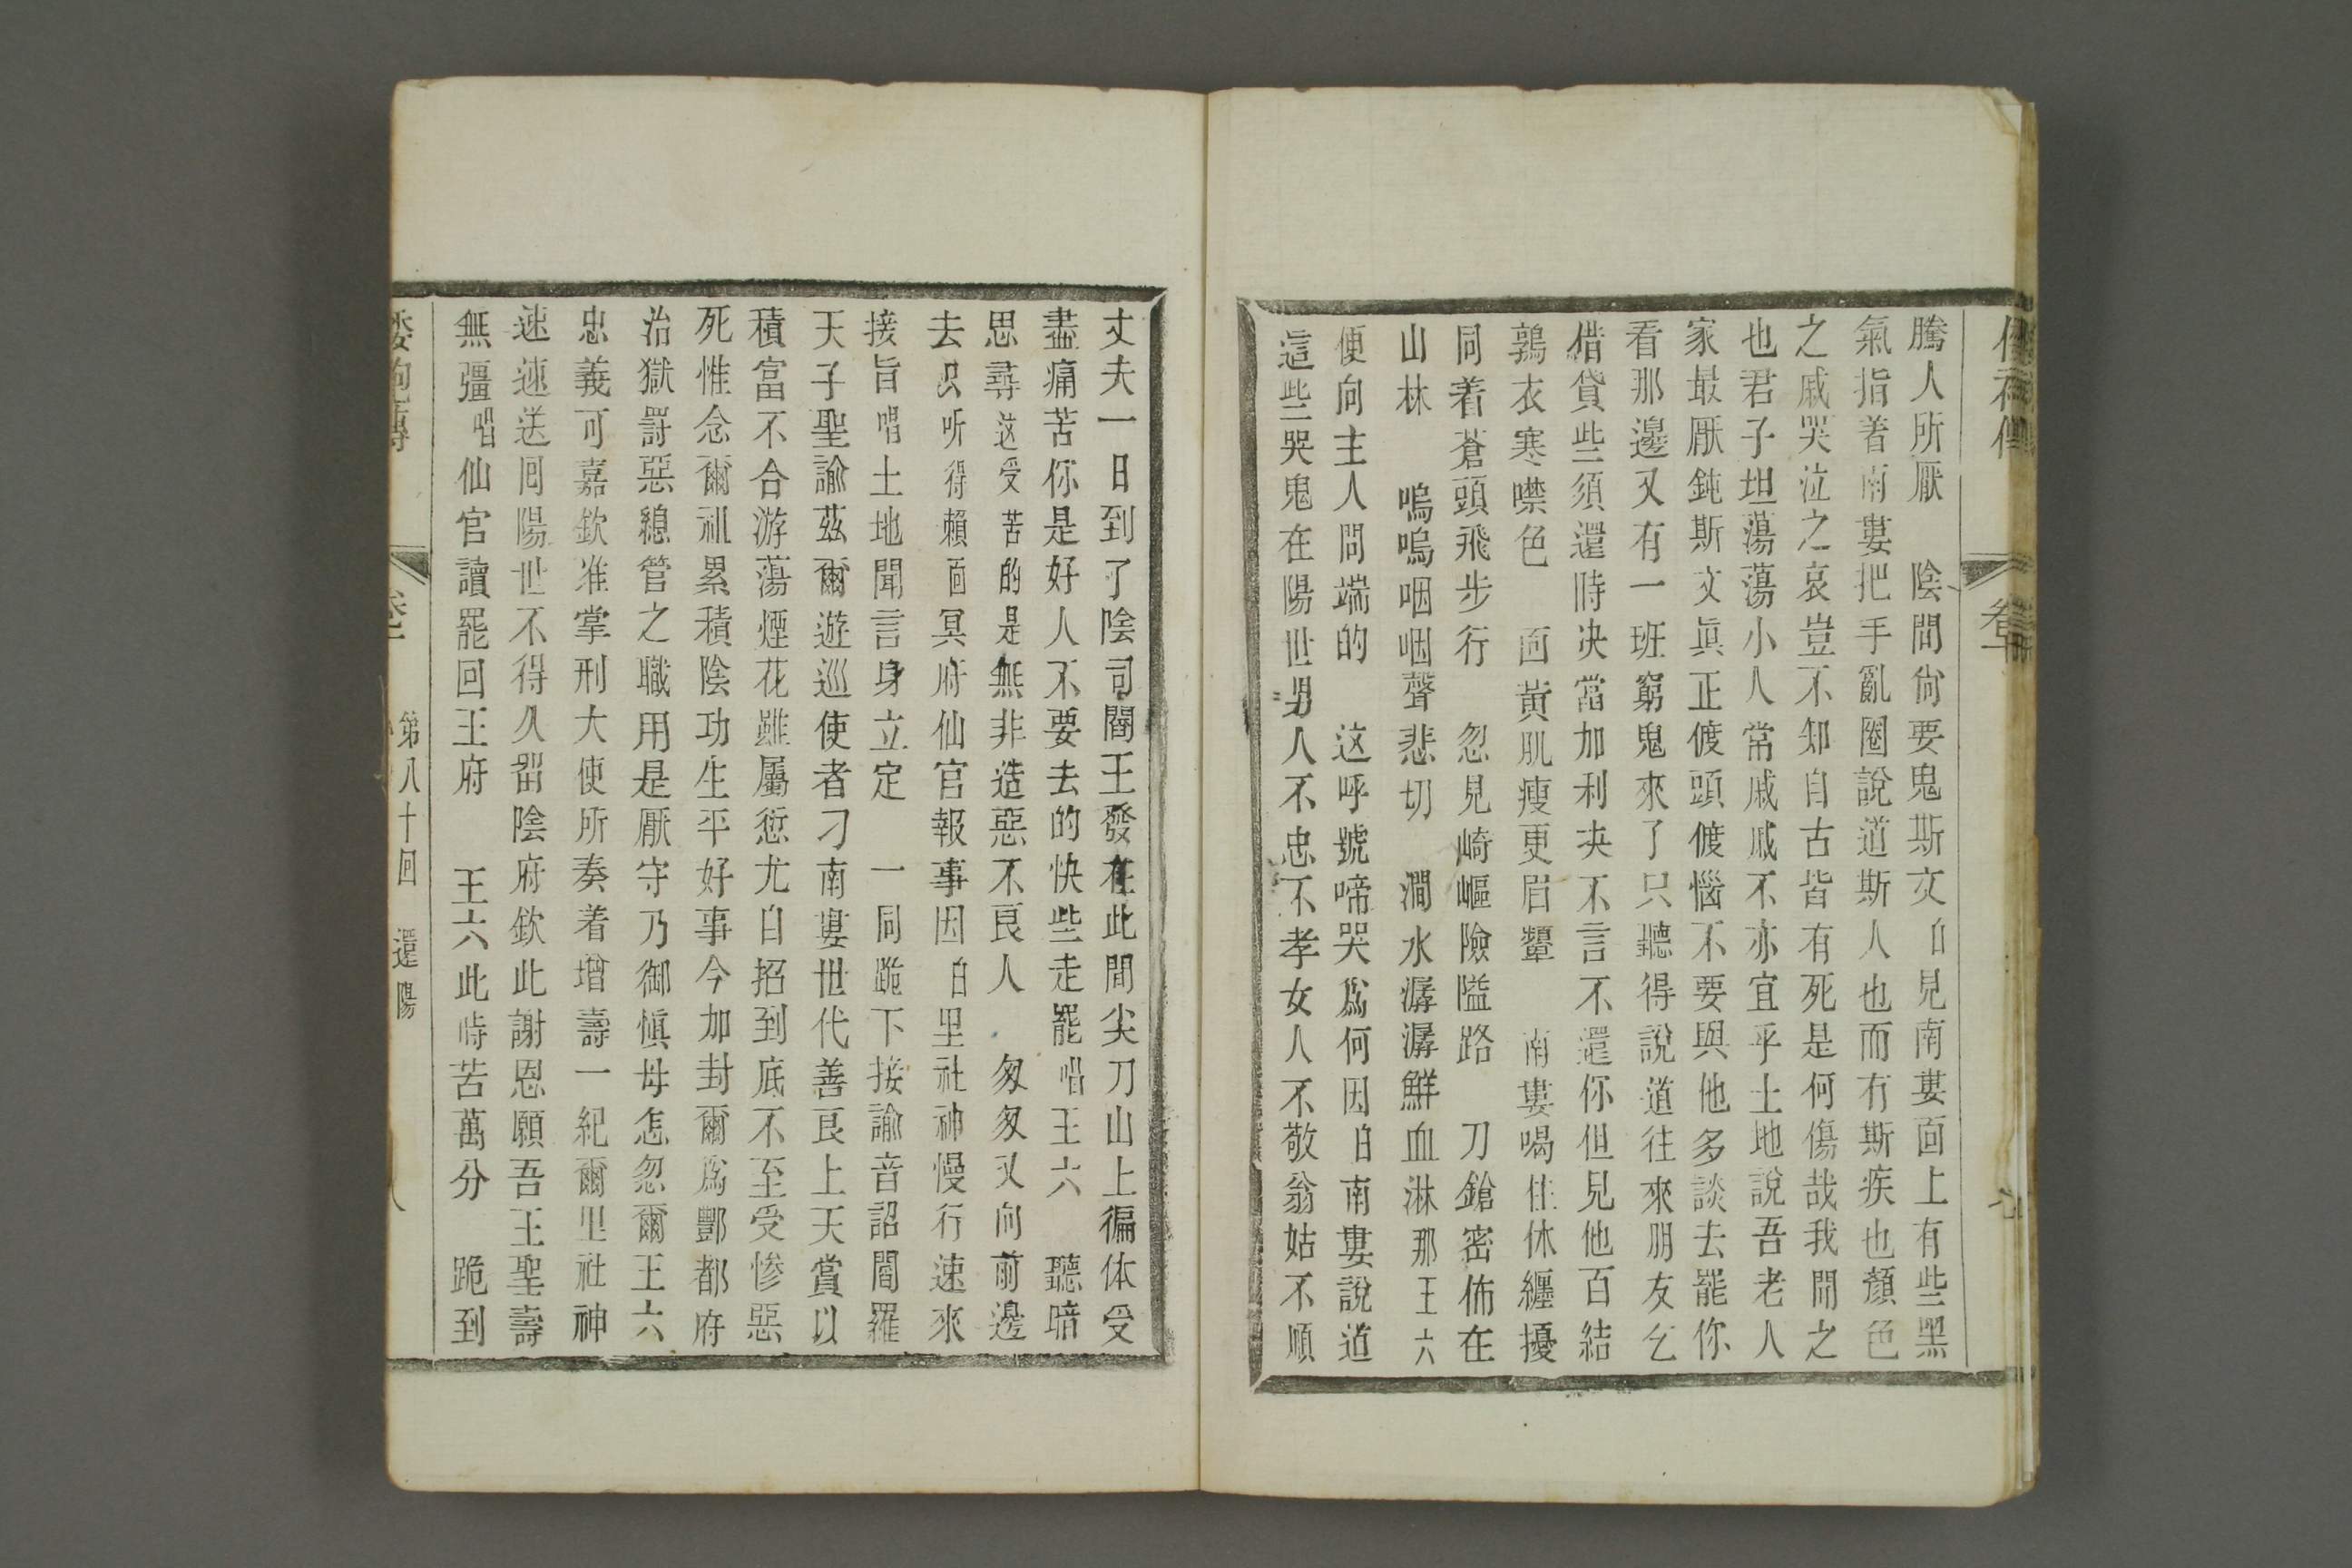 騰人所厭　陰間尙要鬼斯文白見南婁面上有些黑
氣指着南婁把手亂圈說道斯人也而有斯疾也顏色
之戚哭泣之哀豈不知自古皆有死是何傷哉我聞之
也君子坦蕩蕩小人常戚戚不亦宜乎土地說吾老人
家最厭鈍斯文眞正傻頭傻惱不要與他多談去罷你
看那邊又有一班窮鬼來了只聽得說道往來朋友乞
借貸些須還時决當加利夬不言不還你但見他百結
鶉衣寒噤色　面黃肌瘦更眉顰　南婁喝住休纏擾
同着蒼頭飛步行　忽見崎嶇險隘路　刀鎗密佈在
山林　嗚嗚咽咽聲悲切　澗水潺潺鮮血淋那王六
便向主人問端的　这呼號啼哭爲何因白南婁說道
這些哭鬼在陽世男人不忠不孝女人不敬翁姑不順
丈夫一日到了陰司閻王發在此間尖刀山上徧体受
盡痛苦你是好人不要去的快些走罷唱王六　聽暗
思尋这受苦的是無非造惡不良人　匆匆又向前邊
去只听得頼面冥府仙官報事因白里社神慢行速來
接旨唱土地聞言身立定　一同跪下接諭音詔閻羅
天子聖諭茲爾遊巡使者刁南婁世代善良上天賞以
積富不合游蕩煙花雖屬愆尤自招到底不至受慘惡
死惟念爾祖累積陰功生平好事今加封爾爲酆都府
治獄罸惡總管之職用是厭守乃御愼毋怎忽爾王六
忠義可嘉欽准掌刑大使所奏着增壽一紀爾里社神
速速送囘陽世不得久畱陰府欽此謝恩願吾王聖壽
無彊唱仙官讀罷回王府　王六此時苦萬分　跪到
倭袍傳　卷十　第八十回　還陽　八